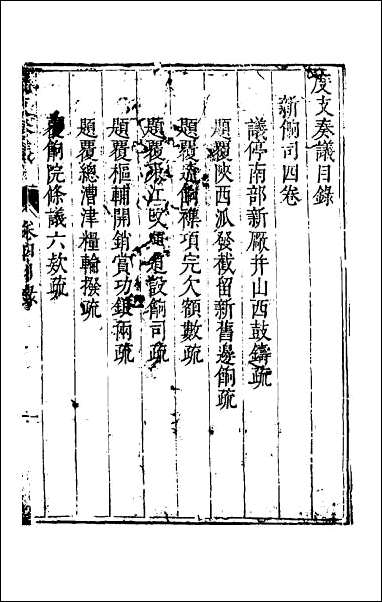 度支奏議目錄
新餉司四卷
議停南部新厰并山西鼓鑄疏
題覆陝西派發截留新舊邊餉疏
題覆遼餉襍項完欠額數疏
題覆 江 道 餉司疏
題覆樞輔開銷賞功銀兩疏
題覆總漕津糧輪撥疏
覆餉院條議六欵疏
度支奏議
卷四目錄
一